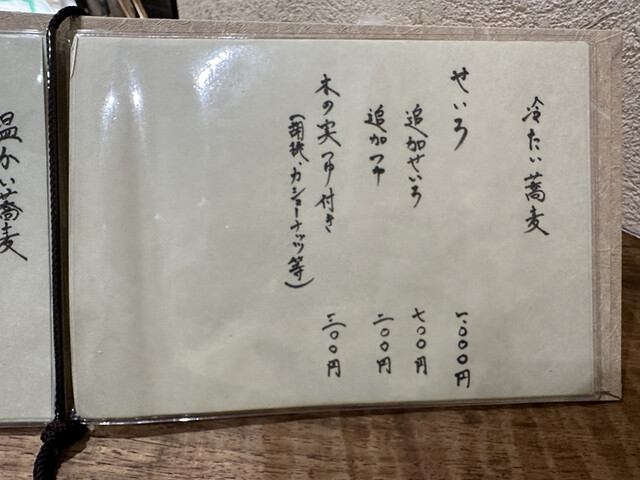 冷たい蕎麦
せいろ 一、000円
追加せいろ 七00円
追加つゆ 二00円
木の実つゆ付き 三00円
(胡桃、カシューナッツ等)
温かい蕎麦